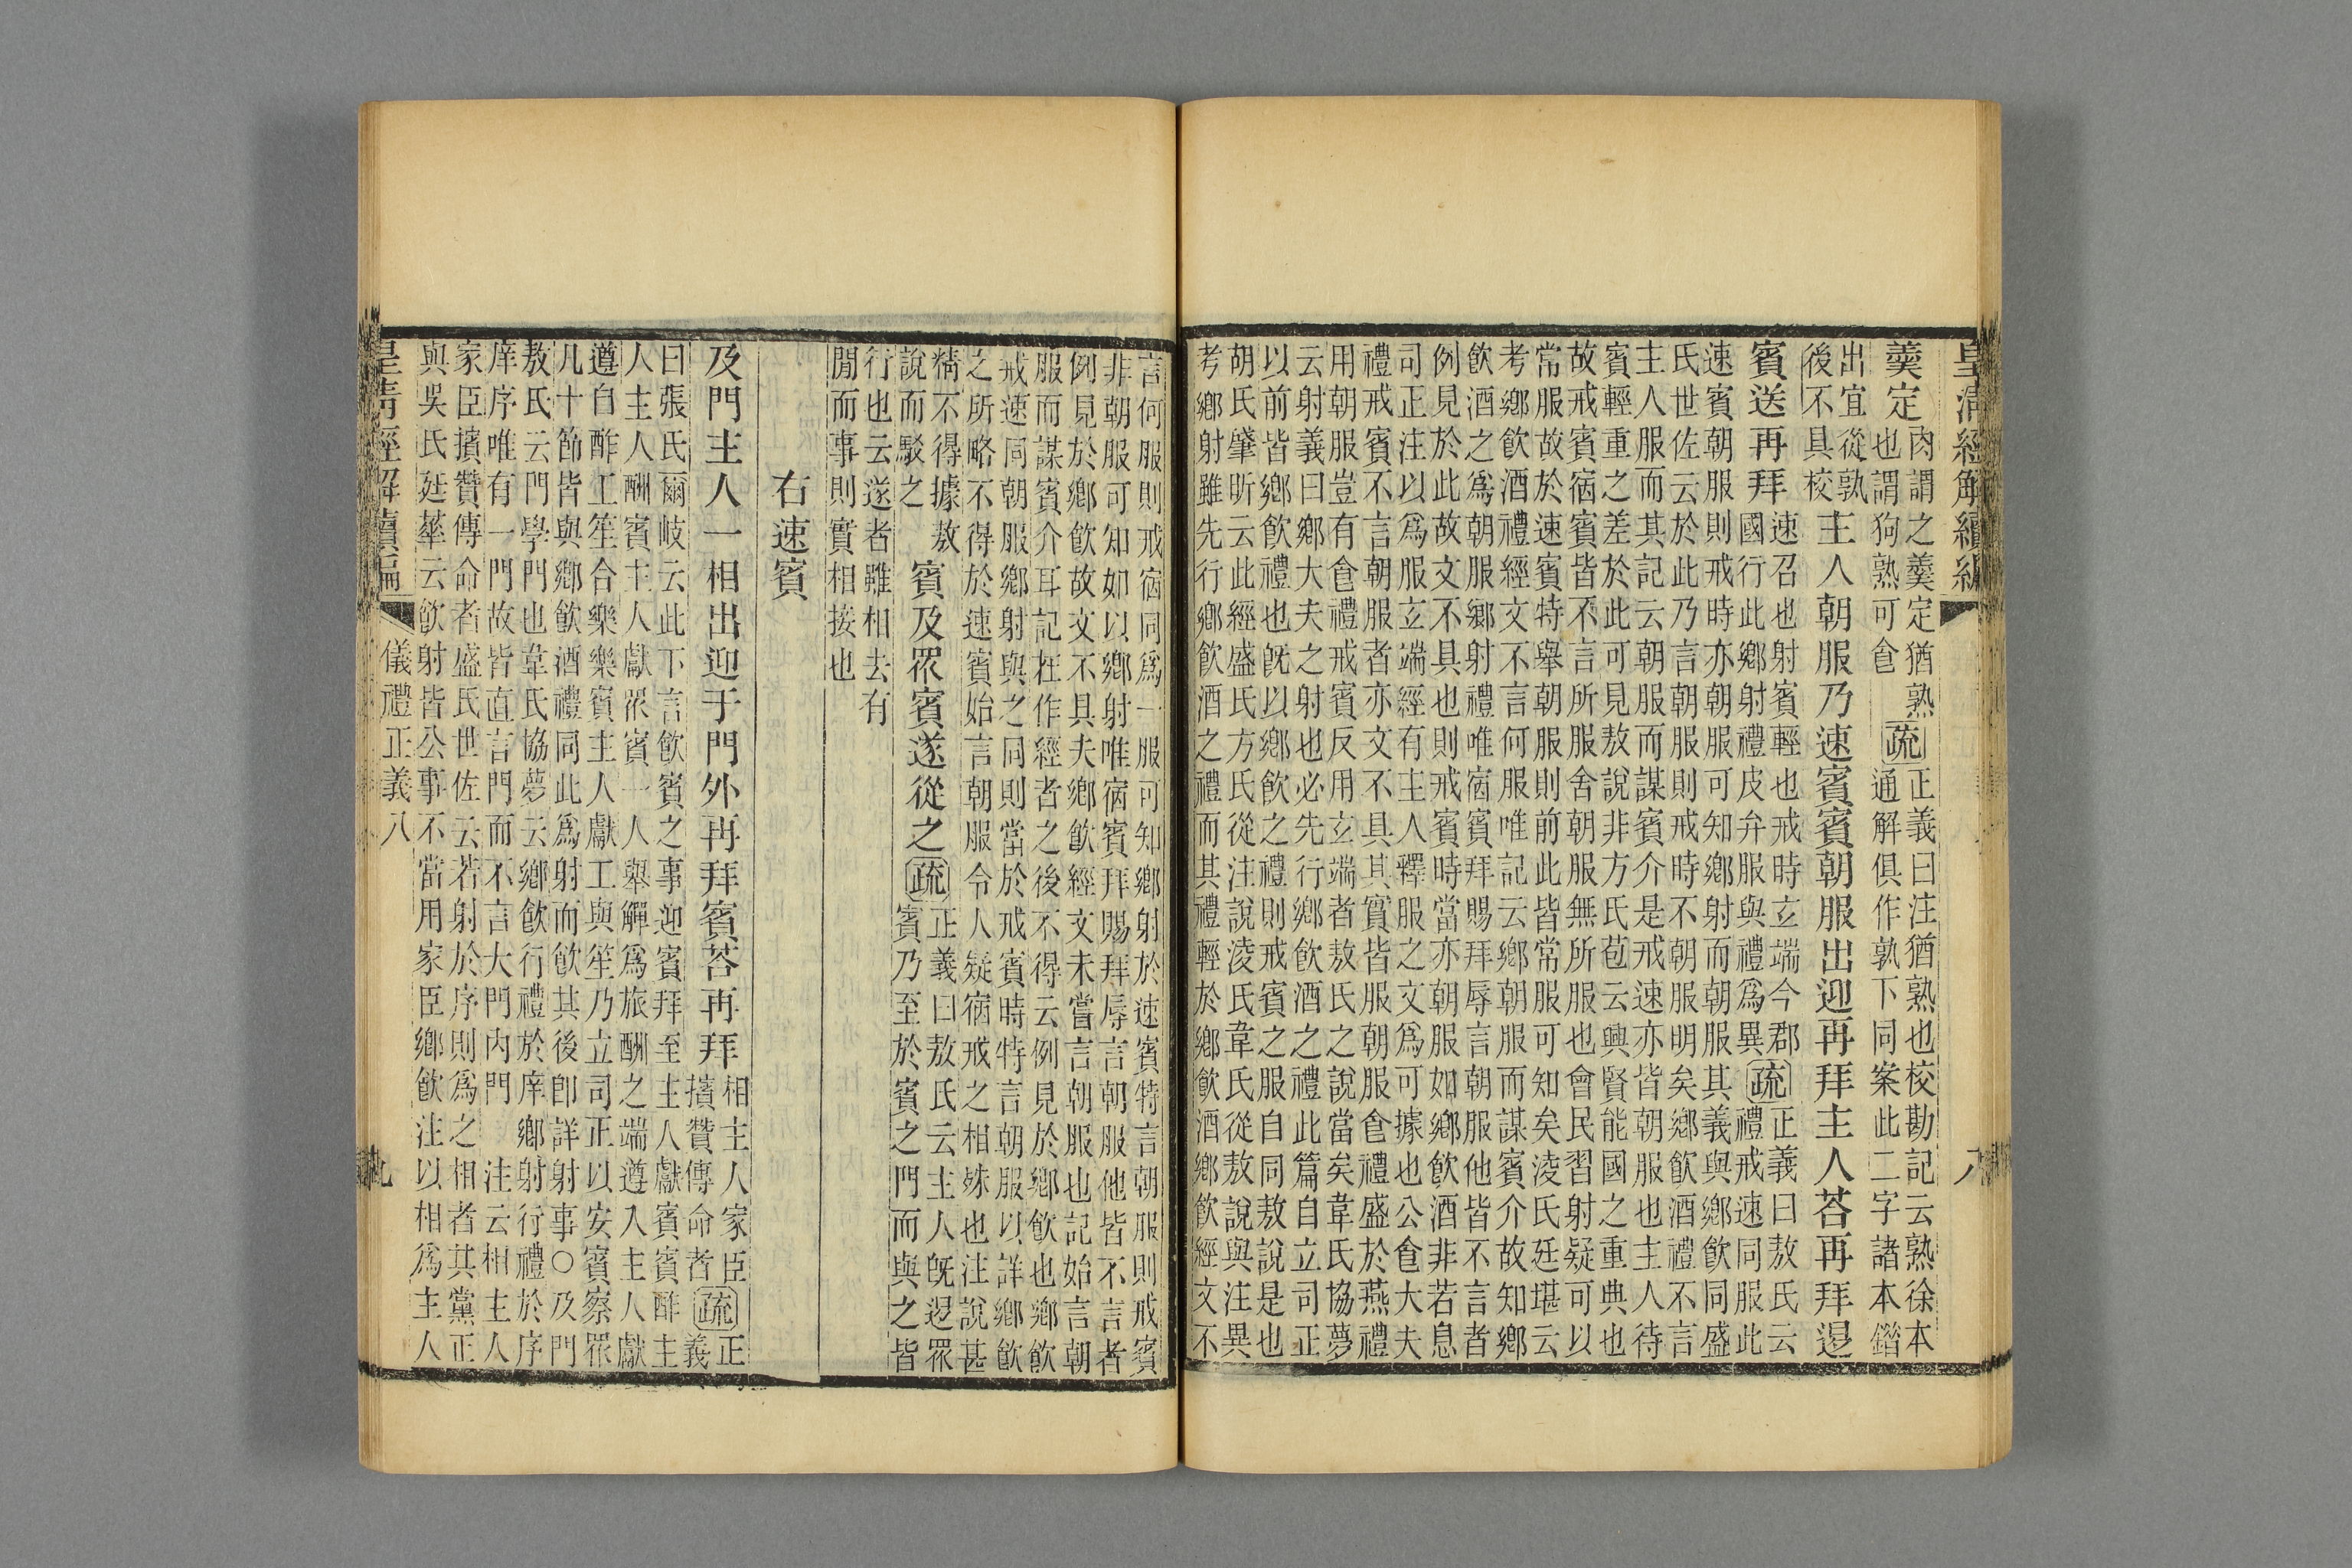 皇清經解續編 八
羹定
肉謂之羹定猶熟
也謂狗熟可食
疏
正義曰注猶熟也校勘記云熟徐本
通解俱作孰下同案此二字諸本錯
出宜從孰
後不具校
主人朝服乃速賓賓朝服出迎再拜主人荅再拜退
賓送再拜
速召也射賓輕也戒時玄端今郡
國行此鄉射禮皮弁服與禮爲異
疏
正義曰敖氏云
禮戒速同服此
速賓朝服則戒時亦朝服可知鄉射而朝服其義與鄉飲同盛
氏世佐云於此乃言朝服則戒時不朝服明矣鄉飲酒禮不言
主人服而其記云朝服而謀賓介是戒速亦皆朝服也主人待
賓輕重之差於此可見敖說非方氏苞云興賢能國之重典也
故戒賓宿賓皆不言所服舍朝服無所服也會民習射疑可以
常服故於速賓特舉朝服則前此皆常服可知矣淩氏廷堪云
考鄉飲酒禮經文不言何服唯記云鄉朝服而謀賓介故知鄉
飲酒之爲朝服鄉射禮唯宿賓拜賜拜辱言朝服他皆不言者
例見於此故文不具也則戒賓時當亦朝服如鄉飲酒非若息
司正注以爲服玄端經有主人釋服之文爲可據也公食大夫
禮戒賓不言朝服者亦文不具其實皆服朝服食禮盛於燕禮
用朝服豈有食禮戒賓反用玄端者敖氏之說當矣韋氏協夢
云射義曰鄉大夫之射也必先行鄉飲酒之禮此篇自立司正
以前皆鄉飲禮也旣以鄉飲之禮則戒賓之服自同敖說是也
胡氏肇昕云此經盛氏方氏從注說淩氏韋氏從敖說與注異
考鄉射雖先行鄉飲酒之禮而其禮輕於鄉飲酒鄉飲經文不
言何服則戒宿同爲一服可知鄉射於速賓特言朝服則戒賓
非朝服可知如以鄉射唯宿賓拜賜拜辱言朝服他皆不言者
例見於鄉飲故文不具夫鄉飲經文未嘗言朝服也記始言朝
服而謀賓介耳記在作經者之後不得云例見於鄉飲也鄉飲
戒速同朝服鄉射與之同則當於戒賓時特言朝服以詳鄉飲
之所略不得於速賓始言朝服令人疑宿戒之相殊也注說甚
精不得據敖
說而駁之
賓及眾賓遂從之
疏
正義曰敖氏云主人旣退眾
賓乃至於賓之門而與之皆
行也云遂者雖相去有
閒而事則實相接也
右速賓
及門主人一相出迎于門外再拜賓荅再拜
相主人家臣
擯贊傳命者
疏
正
義
曰張氏爾岐云此下言飲賓之事迎賓拜至主人獻賓賓酢主
人主人酬賓主人獻眾賓一人舉觶爲旅酬之端遵入主人獻
遵自酢工笙合樂樂賓主人獻工與笙乃立司正以安賓察眾
凡十節皆與鄉飲酒禮同此爲射而飲其後卽詳射事○及門
敖氏云門學門也韋氏協夢云鄉飲行禮於庠鄉射行禮於序
庠序唯有一門故皆直言門而不言大門內門 注云相主人
家臣擯贊傳命者盛氏世佐云若射於序則爲之相者其黨正
與吳氏廷華云飲射皆公事不當用家臣鄉飲注以相爲主人
皇清經解續編 儀禮正義八 九